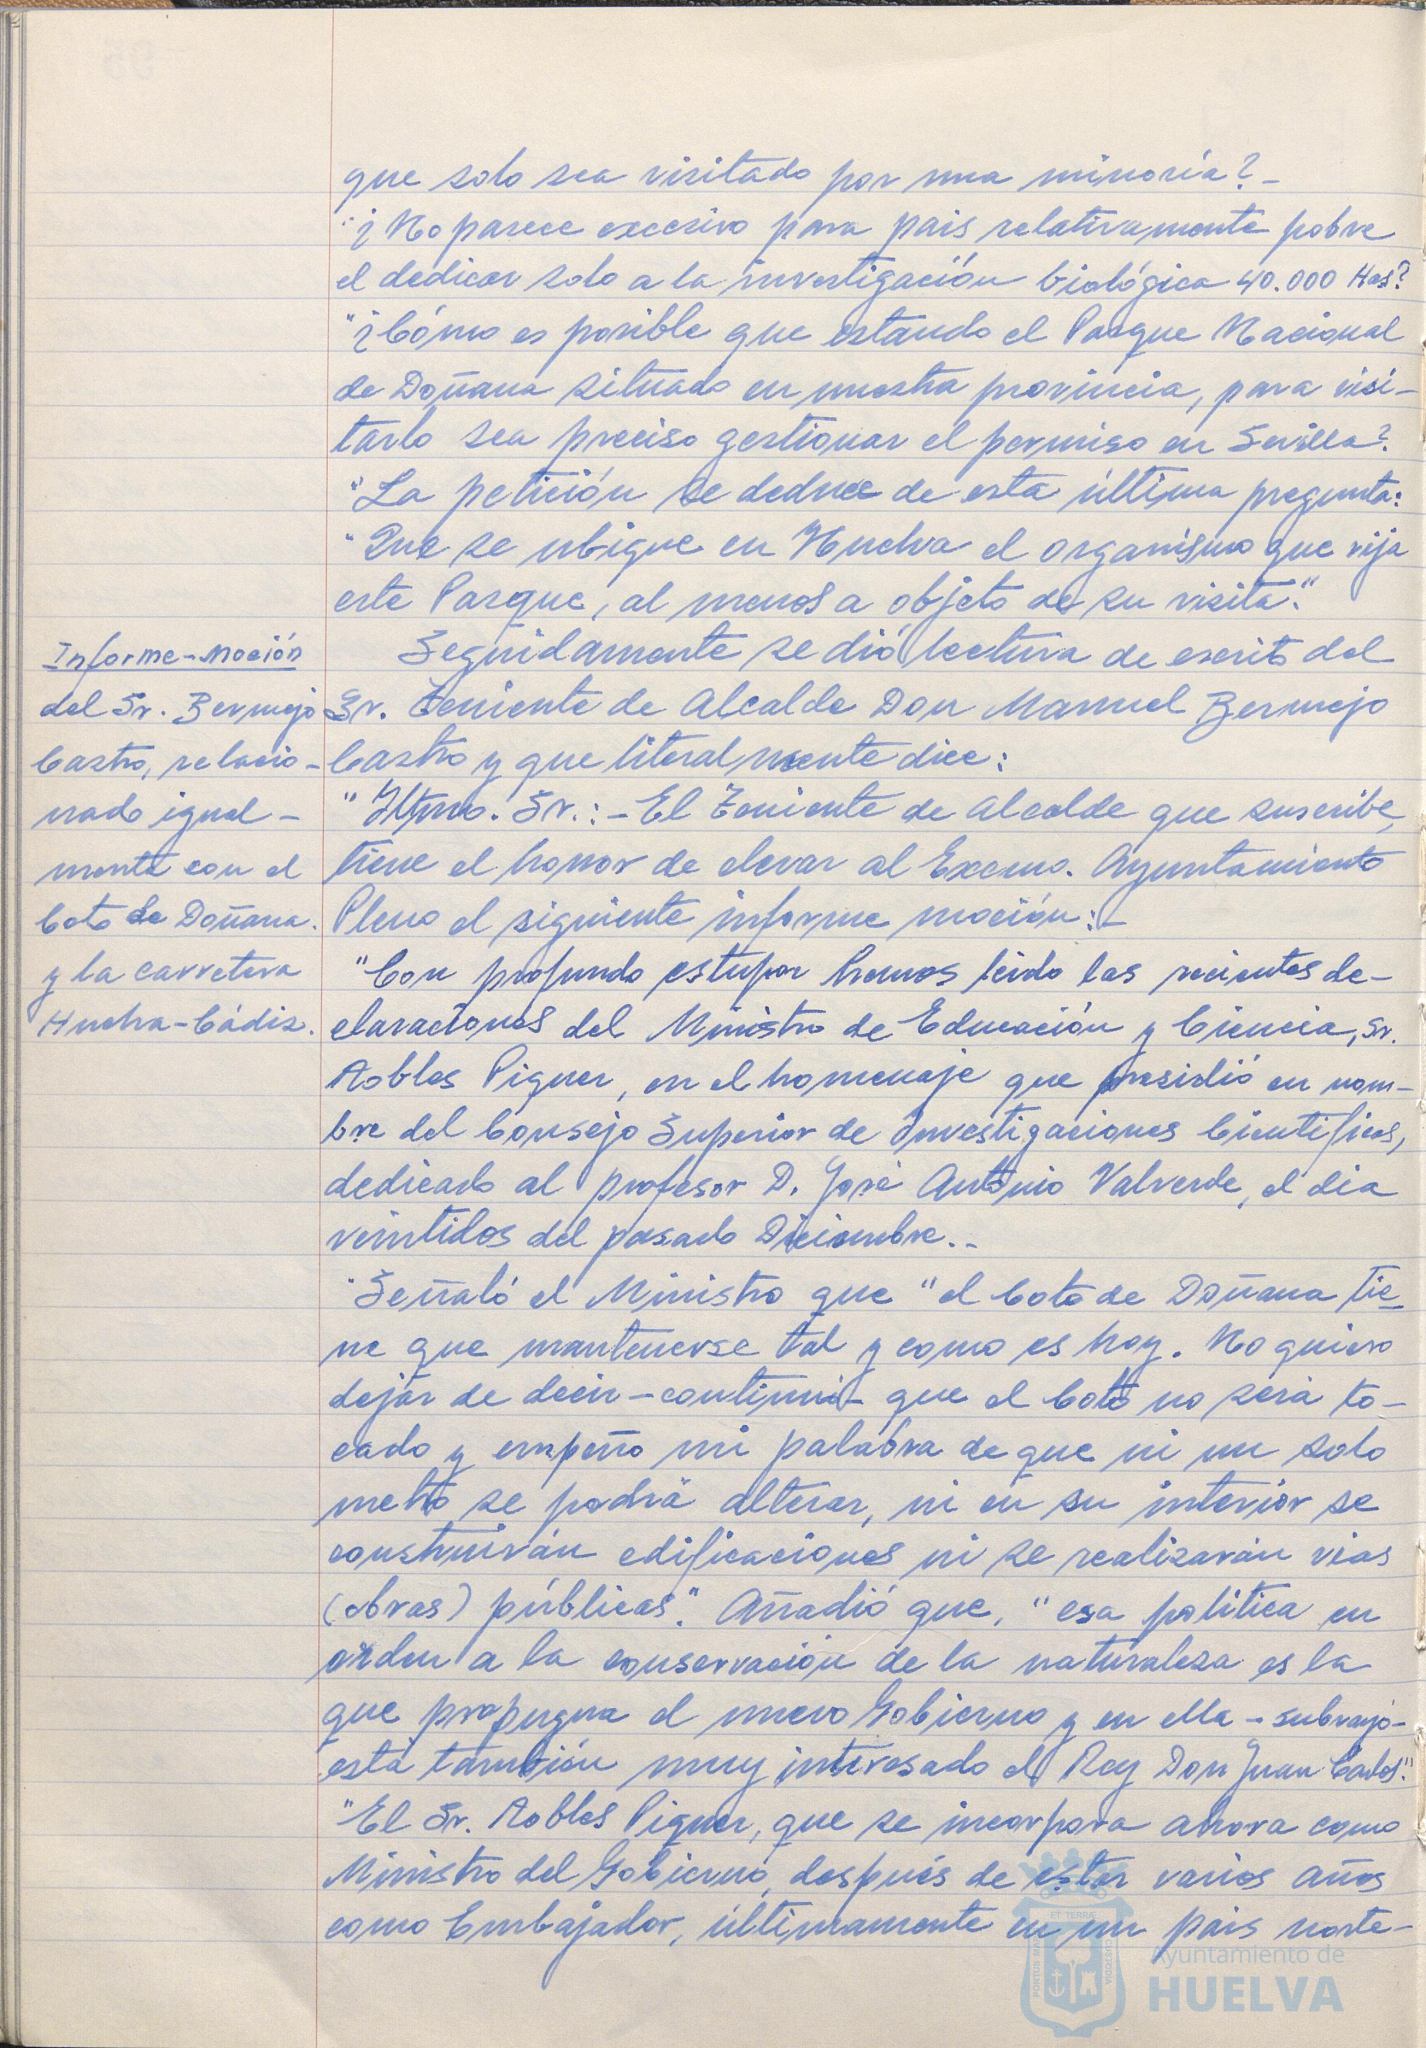 que solo sea visitado por una minoría?-
"¿No parece excesivo para pais relativamente pobre
el dedicar solo a la investigación biológica 40.000 Has?
"¿Cómo es posible que estando el Parque Nacional
de Doñana situado en nuestra provincia, para visi-
tarlo sea preciso gestionar el permiso en Sevilla?
"La petición se deduce de esta última pregunta:
"Que se ubique en Huelva el organismo que rija
este Parque, al menos a objeto de su visita."
Informe-moción
del Sr. Bermejo
Castro, relacio-
nado igual-
mente con el
Coto de Doñana.
y la carretera
Huelva-Cádiz.
Seguidamente se dió lectura de escrito del
Sr. Teniente de Alcalde Don Manuel Bermejo
Castro y que literalmente dice:
"Iltmo. Sr.:- El Teniente de Alcalde que suscribe,
tiene el honor de elevar al Excmo. Ayuntamiento
Pleno el siguiente informe moción:-
"Con profundo estupor hemos leido las recientes de-
claraciones del Ministro de Educación y Ciencia, Sr.
Robles Piquer, en el homenaje que presidió en nom-
bre del Consejo Superior de Investigaciones Cientificas,
dedicado al profesor D. José Antonio Valverde, el dia
veintidos del pasado Diciembre.-
"Señaló el Ministro que "el Coto de Doñana tie-
ne que mantenerse tal y como es hoy. No quiero
dejar de decir -continuó- que el Coto no será to-
cado y empeño mi palabra de que ni un solo
metro se podrá alterar, ni en su interior se
construirán edificaciones ni se realizarán vias
(obras) públicas". Añadió que, "esa politica en
orden a la conservación de la naturaleza es la
que propugna el nuevo Gobierno y en ella -subrayó-
está también muy interesado el Rey Don Juan Carlos."
"El Sr. Robles Piquer, que se incorpora ahora como
Ministro del Gobierno, después de estar varios años
como Embajador, últimamente en un pais norte-
ET TERRÆ
PORTUS MARIS
CUSTODIA
Ayuntamiento de
HUELVA